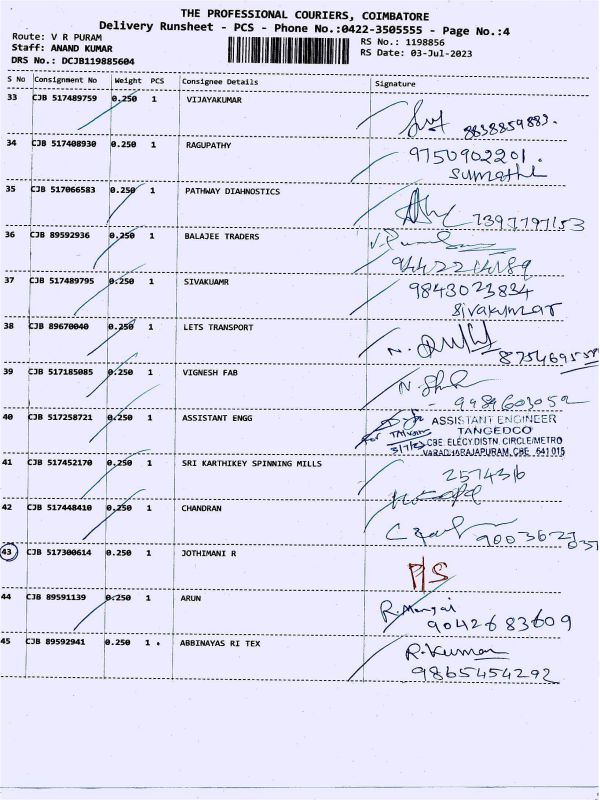 THE PROFESSIONAL COURIERS, COIMBATORE
Delivery Runsheet - PCS - Phone No.:0422-3505555 - Page No.:4
Route: V R PURAM
Staff: ANAND KUMAR
DRS No.: DCJB119885604
RS No.: 1198856
RS Date: 03-Jul-2023
S No Consignment No Weight PCS Consignee Details Signature
33 CJB 517489759 0.250 1 VIJAYAKUMAR
8838859883.
34 CJB 517408930 0.250 1 RAGUPATHY 9750902201.
Sumathi
35 CJB 517066583 0.250 1 PATHWAY DIAHNOSTICS
7397797153
36 CJB 89592936 0.250 1 BALAJEE TRADERS
9442214189
37 CJB 517489795 0.250 1 SIVAKUAMR 9843023834
Sivakumar
38 CJB 89670040 0.250 1 LETS TRANSPORT
39 CJB 517185085 1 0.250 VIGNESH FAB
40 CJB 517258721 0.250 1 ASSISTANT ENGG ASSISTANT ENGINEER
TANGEDCO
CBE. ELECY.DISTN. CIRCLE/METRO
3/7/23 VARADHARAJAPURAM, CBE 641 015
41 CJB 517452170 0.250 1 SRI KARTHIKEY SPINNING MILLS
2574316
42 CJB 517448410 0.250 1 CHANDRAN
43 CJB 517300614 0.250 1 JOTHIMANI R
P/S
44 CJB 89591139 0.250 1 ARUN R.Mangai
9042683609
45 CJB 89592941 0.250 1 ABBINAYAS RI TEX R.Kumar
9865454292